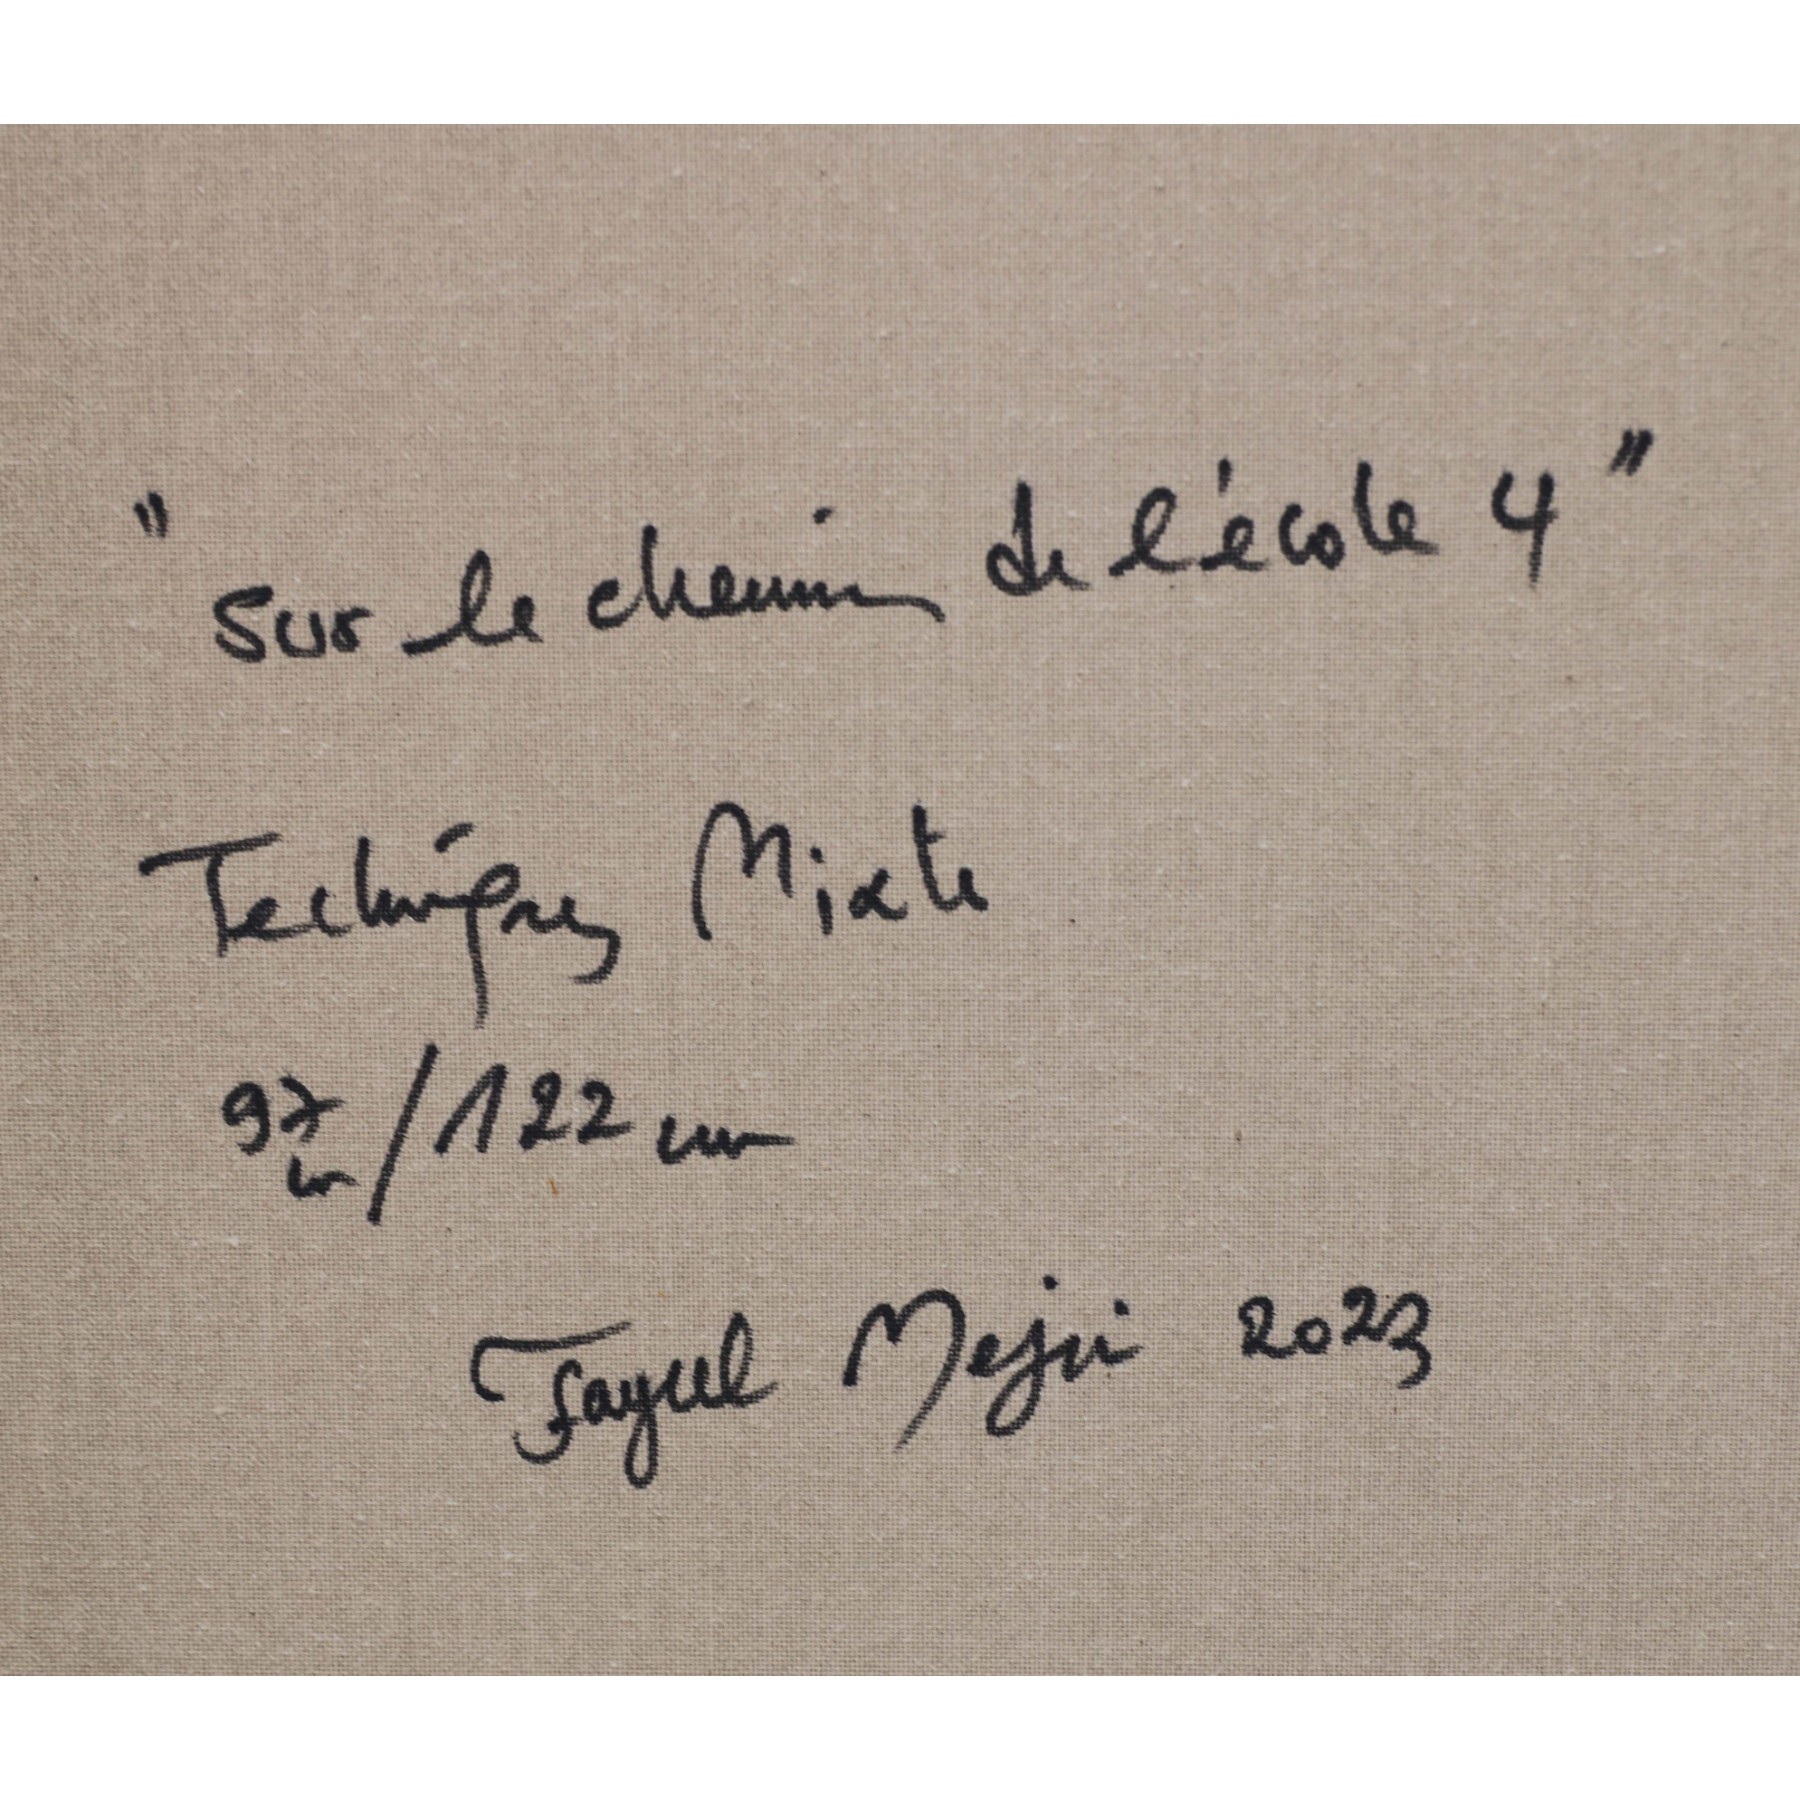 "Sur le chemin de l'école 4"
Techniques Mixte
97 cm / 122 cm
Fayçal Mejri 2023